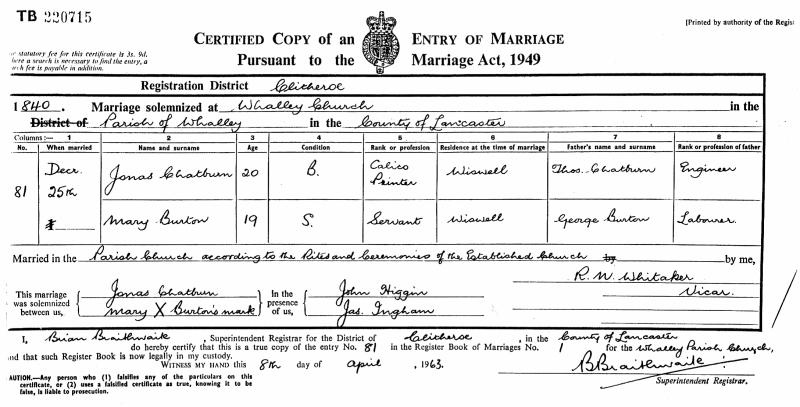 TB 220715
[Printed by authority of the Regis
CERTIFIED COPY of an ENTRY OF MARRIAGE
statutory fee for this certificate is 3s. 9d.
here a search is necessary to find the entry, a
rch fee is payable in addition.
Pursuant to the Marriage Act, 1949
Registration District Clitheroe
1840. Marriage solemnized at Whalley Church in the
District of Parish of Whalley in the County of Lancaster
Columns:— 1 2 3 4 5 6 7 8
No. When married Name and surname Age Condition Rank or profession Residence at the time of marriage Father's name and surname Rank or profession of father
81 Decr. 25th Jonas Chatburn 20 B. Calico Printer Wiswell Thos. Chatburn Engineer
Mary Burton 19 S. Servant Wiswell George Burton Labourer.
Married in the Parish Church according to the Rites and Ceremonies of the Established Church by by me,
R. N. Whitaker
Vicar.
This marriage was solemnized between us, Jonas Chatburn In the presence of us, John Higgin
Mary X Burton's mark Jas. Ingham
I, Brian Braithwaite, Superintendent Registrar for the District of Clitheroe, in the County of Lancaster
do hereby certify that this is a true copy of the entry No. 81 in the Register Book of Marriages No. 1 for the Whalley Parish Church,
and that such Register Book is now legally in my custody.
WITNESS MY HAND this 8th day of April, 1963.
BBraithwaite
Superintendent Registrar.
AUTION.—Any person who (1) falsifies any of the particulars on this
certificate, or (2) uses a falsified certificate as true, knowing it to be
false, is liable to prosecution.